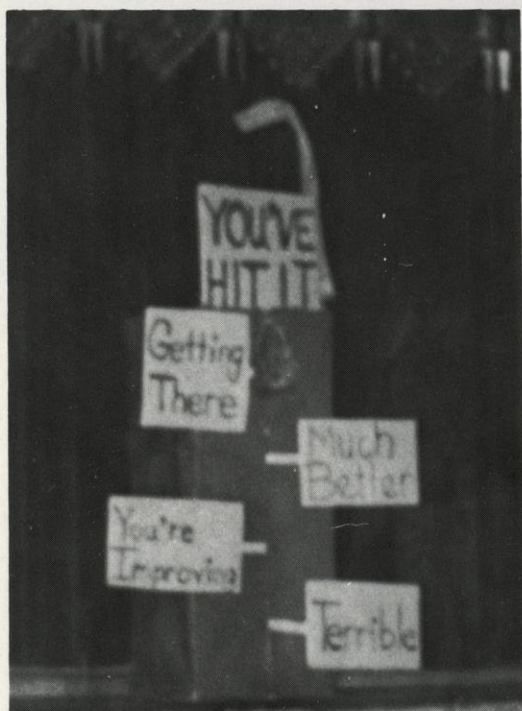 YOU'VE
HIT IT
Getting
There
Much
Better
You're
Improving
Terrible